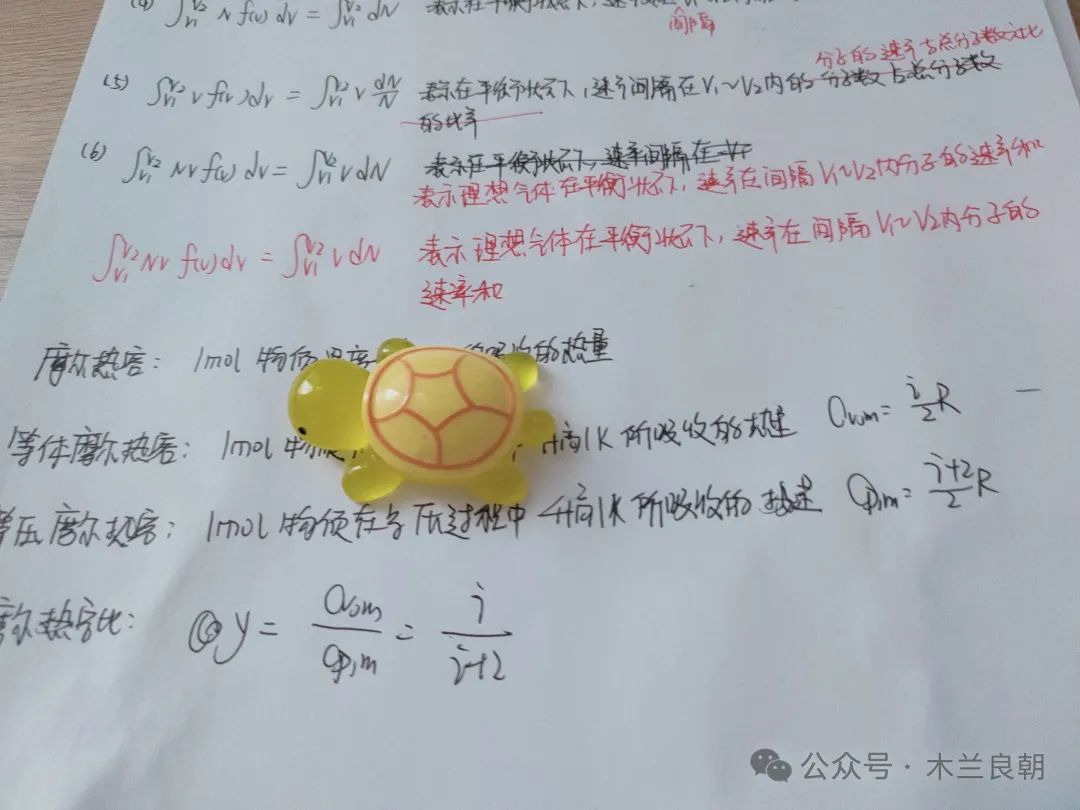 (4) ∫_{V1}^{V2} N f(v) dv = ∫_{V1}^{V2} dN 表示在平衡状态下,速率
间隔
分子的速率占总分子数之比
(5) ∫_{V1}^{V2} v f(v) dv = ∫_{V1}^{V2} v dN/N 表示在平衡状态下,速率间隔在V1~V2内的分子数占总分子数
的比率
(6) ∫_{V1}^{V2} Nv f(v) dv = ∫_{V1}^{V2} v dN 表示在平衡状态下,速率间隔在
表示理想气体在平衡状态下,速率在间隔V1~V2内分子的速率和
∫_{V1}^{V2} Nv f(v) dv = ∫_{V1}^{V2} v dN 表示理想气体在平衡状态下,速率在间隔V1~V2内分子的
速率和
摩尔热容: 1mol物质温度 吸收的热量
等体摩尔热容: 1mol物质 升高1K所吸收的热量 Cv,m = i/2 R
等压摩尔热容: 1mol物质在等压过程中升高1K所吸收的热量 Cp,m = i+2/2 R
摩尔热容比: γ = Cv,m/Cp,m = i/i+2
公众号·木兰良朝